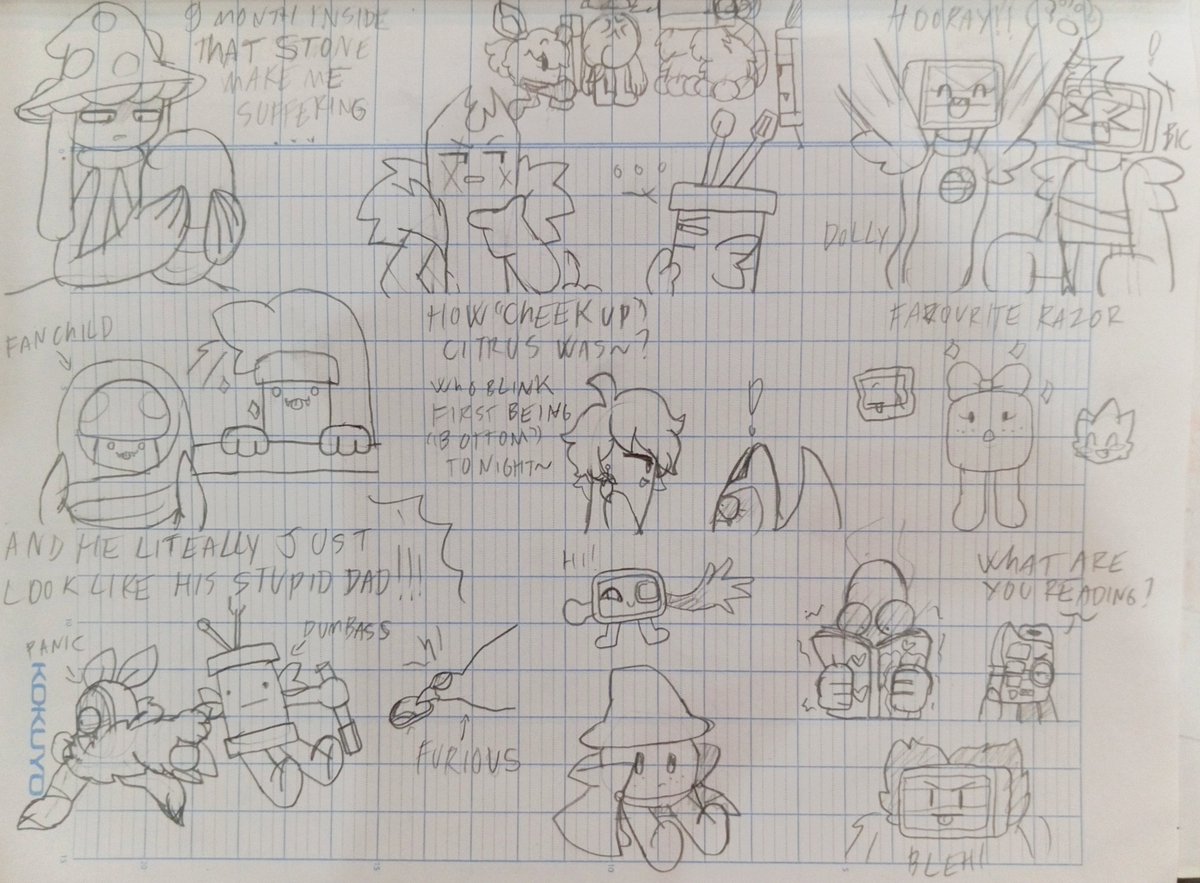 9 MONTH INSIDE
THAT STONE
MAKE ME
SUFFERING
...
HOORAY!!
!
BIC
DOLLY
FANCHILD
HOW "CHEEK UP"
CITRUS WAS~?
WHO BLINK
FIRST BEING
("BOTTOM")
TONIGHT~
!
FAVOURITE RAZOR
AND HE LITEALLY JUST
LOOK LIKE HIS STUPID DAD!!!
HI!!
WHAT ARE
YOU READING?
PANIC
DUMBASS
KOKUYO
FURIOUS
BLEH!